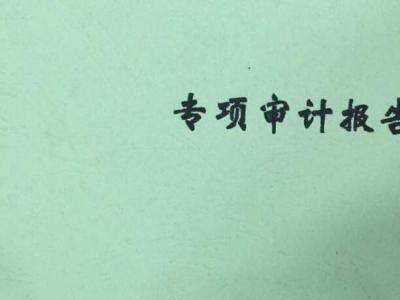 专项审计报告